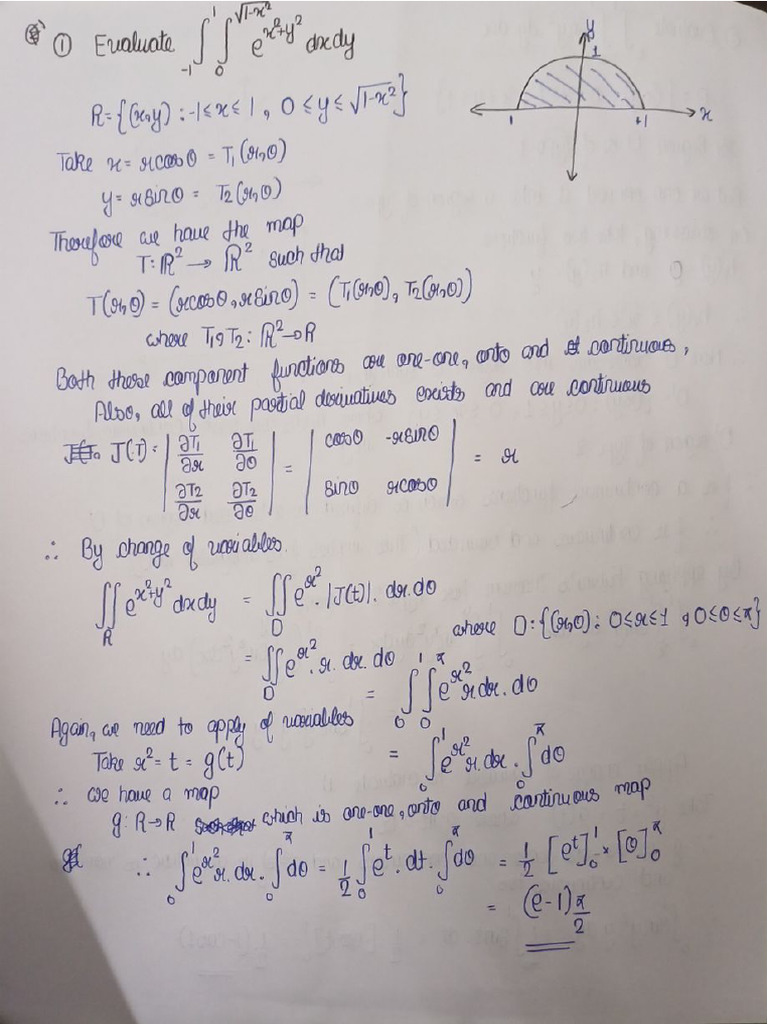 ① Evaluate ∫₋₁¹ ∫₀^√(1-x²) e^(x²+y²) dxdy
y
1
1
+1
x
R = {(x,y) : -1 ≤ x ≤ 1, 0 ≤ y ≤ √(1-x²)}
Take x = rcosθ = T₁(r,θ)
y = rsinθ = T₂(r,θ)
Therefore we have the map
T: R² → R² such that
T(r,θ) = (rcosθ, rsinθ) = (T₁(r,θ), T₂(r,θ))
where T₁, T₂ : R² → R
Both these component functions are one-one, onto and continuous,
Also, all of their partial derivatives exists and are continuous
J(T) = | ∂T₁/∂r ∂T₁/∂θ ; ∂T₂/∂r ∂T₂/∂θ | = | cosθ -rsinθ ; sinθ rcosθ | = r
∴ By change of variables
∬_R e^(x²+y²) dxdy = ∬_D e^(r²) . |J(t)| . dr.dθ
where D : {(r,θ) : 0 ≤ r ≤ 1, 0 ≤ θ ≤ π}
= ∬_D e^(r²) . r. dr. dθ = ∫₀¹ ∫₀^π e^(r²) r dr. dθ
Again, we need to apply of variables
Take r² = t = g(t) = ∫₀¹ e^(r²) r. dr . ∫₀^π dθ
∴ we have a map
g: R → R which is one-one, onto and continuous map
∴ ∫₀¹ e^(r²) r. dr . ∫₀^π dθ = 1/2 ∫₀¹ e^t . dt . ∫₀^π dθ = 1/2 [e^t]₀¹ × [θ]₀^π
= (e-1) π/2